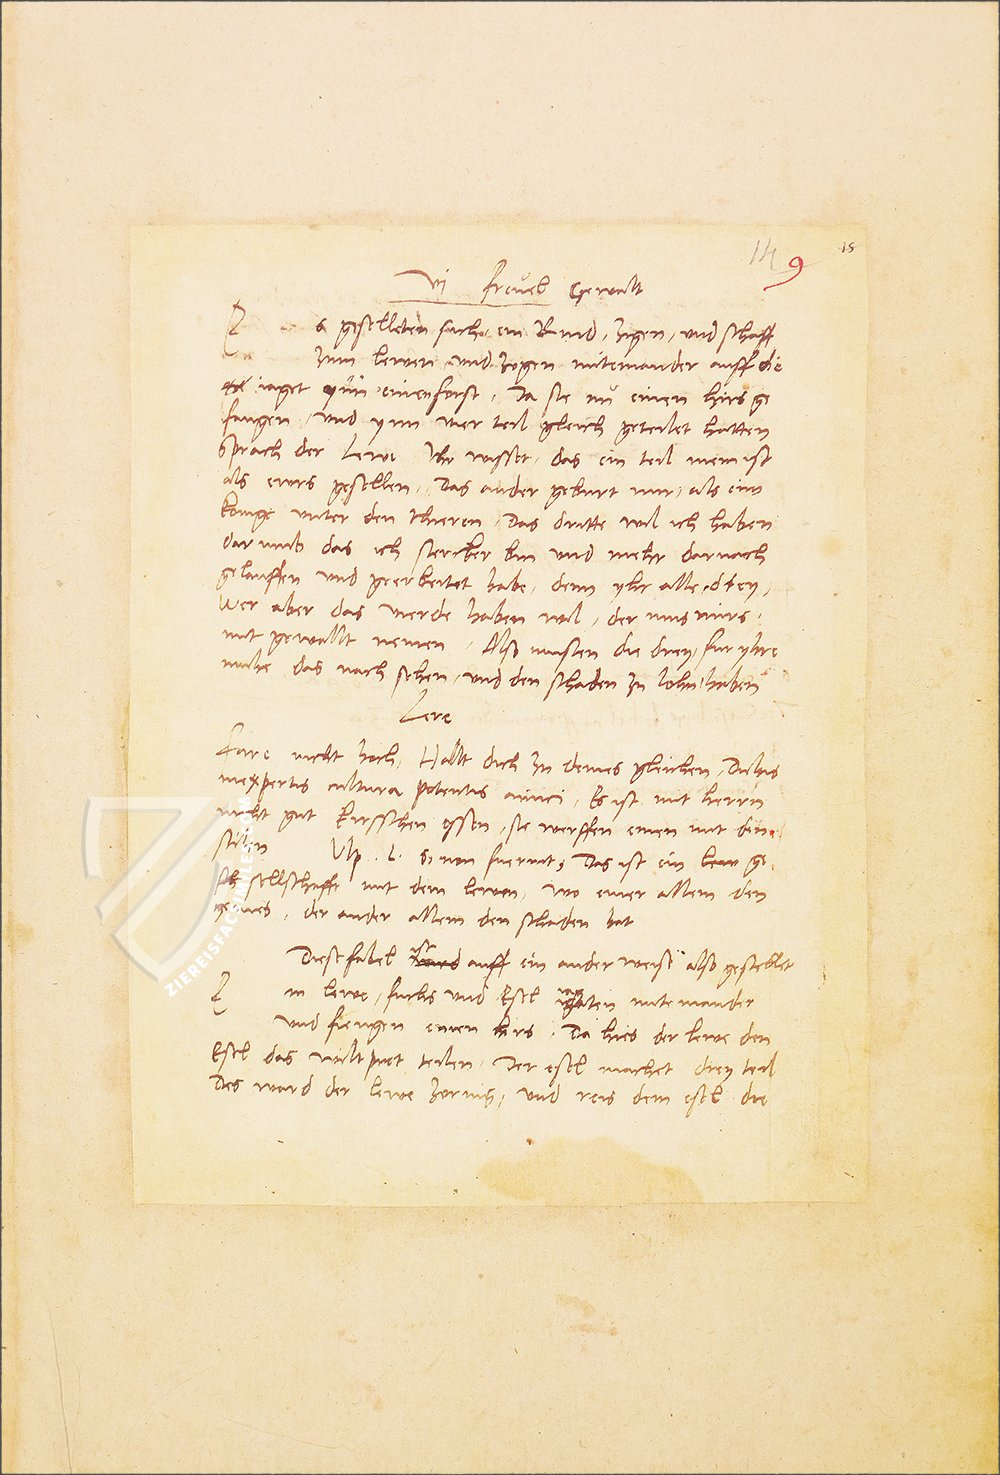 149 15
vi frevel Gewalt
Es geselleten sich ein Rind, Zigen, und schaff
zum lewen und zogen miteinander auff die
iaget ynn einen forst, Da sie nu einen hirs ge
fangen, und ynn vier teil gleich geteilet hatten
Sprach der Lewe Ihr wisset, das ein teil mein ist
als ewrs gesellen, Das ander geburt mir, als eim
konige unter den thieren, Das dritte wil ich haben
darumb das ich stercker bin und mehr darnach
gelauffen und geerbeitet habe, denn yhr alle drey,
Wer aber das vierde haben wil, der mus mirs
mit gewallt nemen, Also musten die drey, fur yhre
muhe das nach sehen, und den schaden zu lohn haben
Lere
Fare nicht hoch, Hallt dich zu deines gleichen, Dulcis
inexpertis cultura potentis amici, Es ist mit herrn
nicht gut kirsschen essen, sie werffen einen mit den
stilen Ulp. l. si non fuerint, Das ist ein ge
sellschafft mit dem lewen, wo einer allein den
genies, der ander allein den schaden hat
Diese fabel ist auff ein ander weise also gestellet
Ein lewe, fuchs und Esel iagten miteinander
und fiengen einen hirs, Da hies der lewe den
Esel das wiltpret teilen, Der esel machet drey teil
Des ward der lewe zornig, und reis dem esel die
ZIEREISFACSIMILE.COM